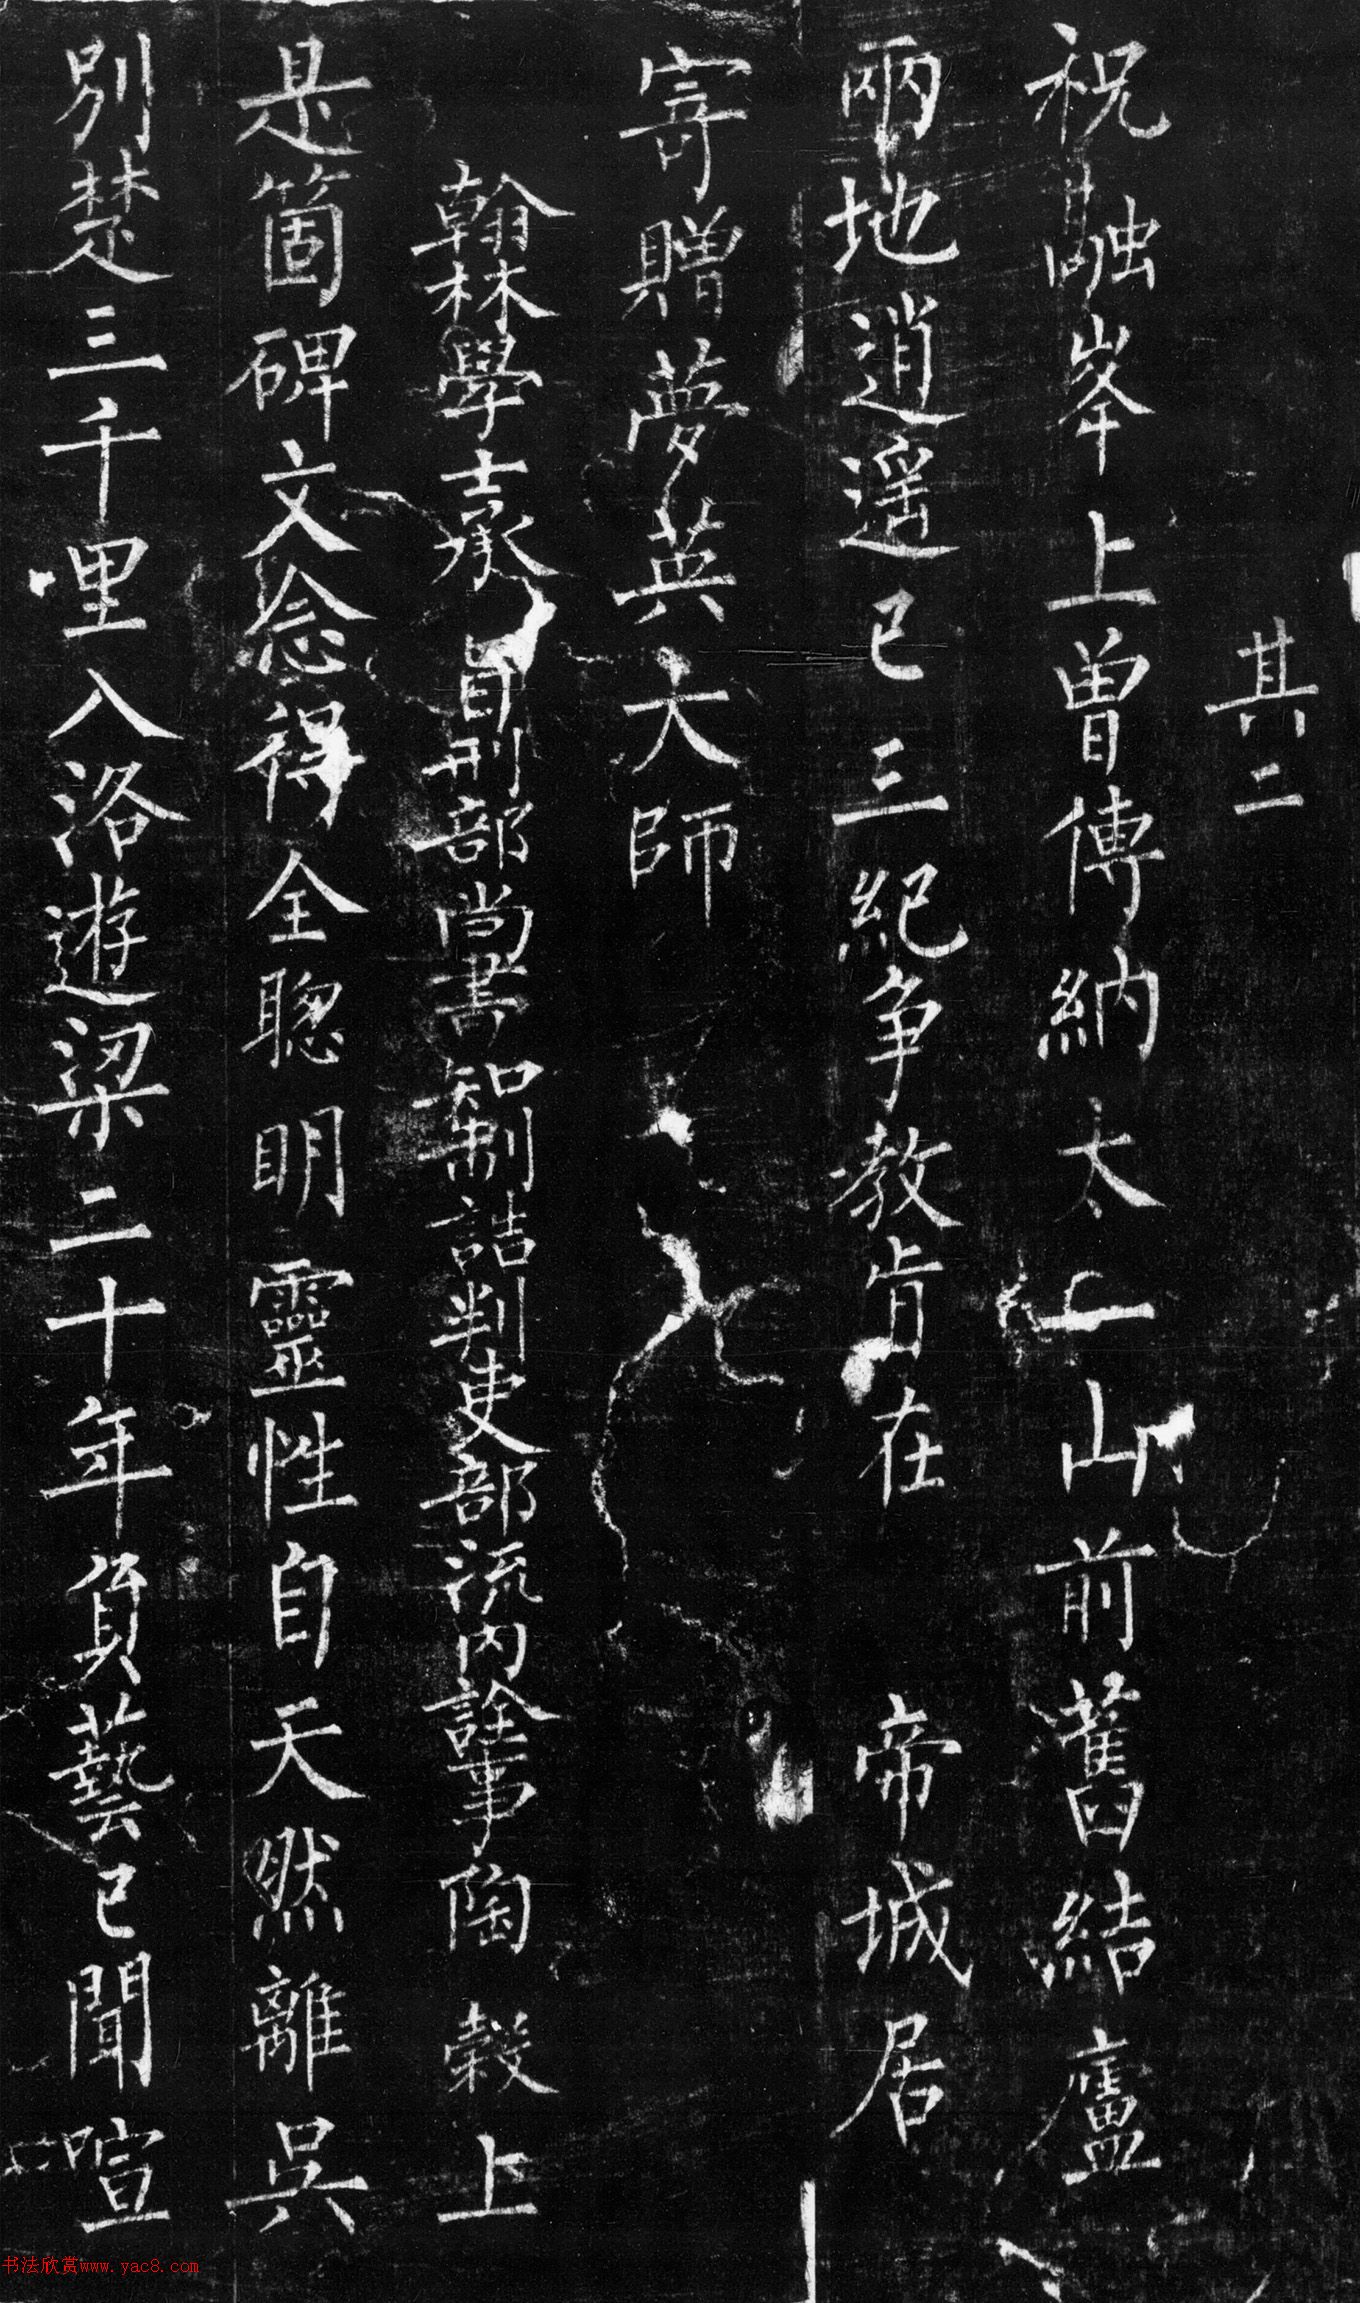 其二
祝融峯上曽傳納太一山前舊結廬
兩地逍遥已三紀争教肯在帝城居
寄贈夢英大師
翰林學士承旨刑部尚書知制誥判吏部流内詮事陶穀上
是箇碑文念得全聦明靈性自天然離吳
别楚三千里入洛遊梁二十年負藝已聞喧
书法欣赏www.yac8.com